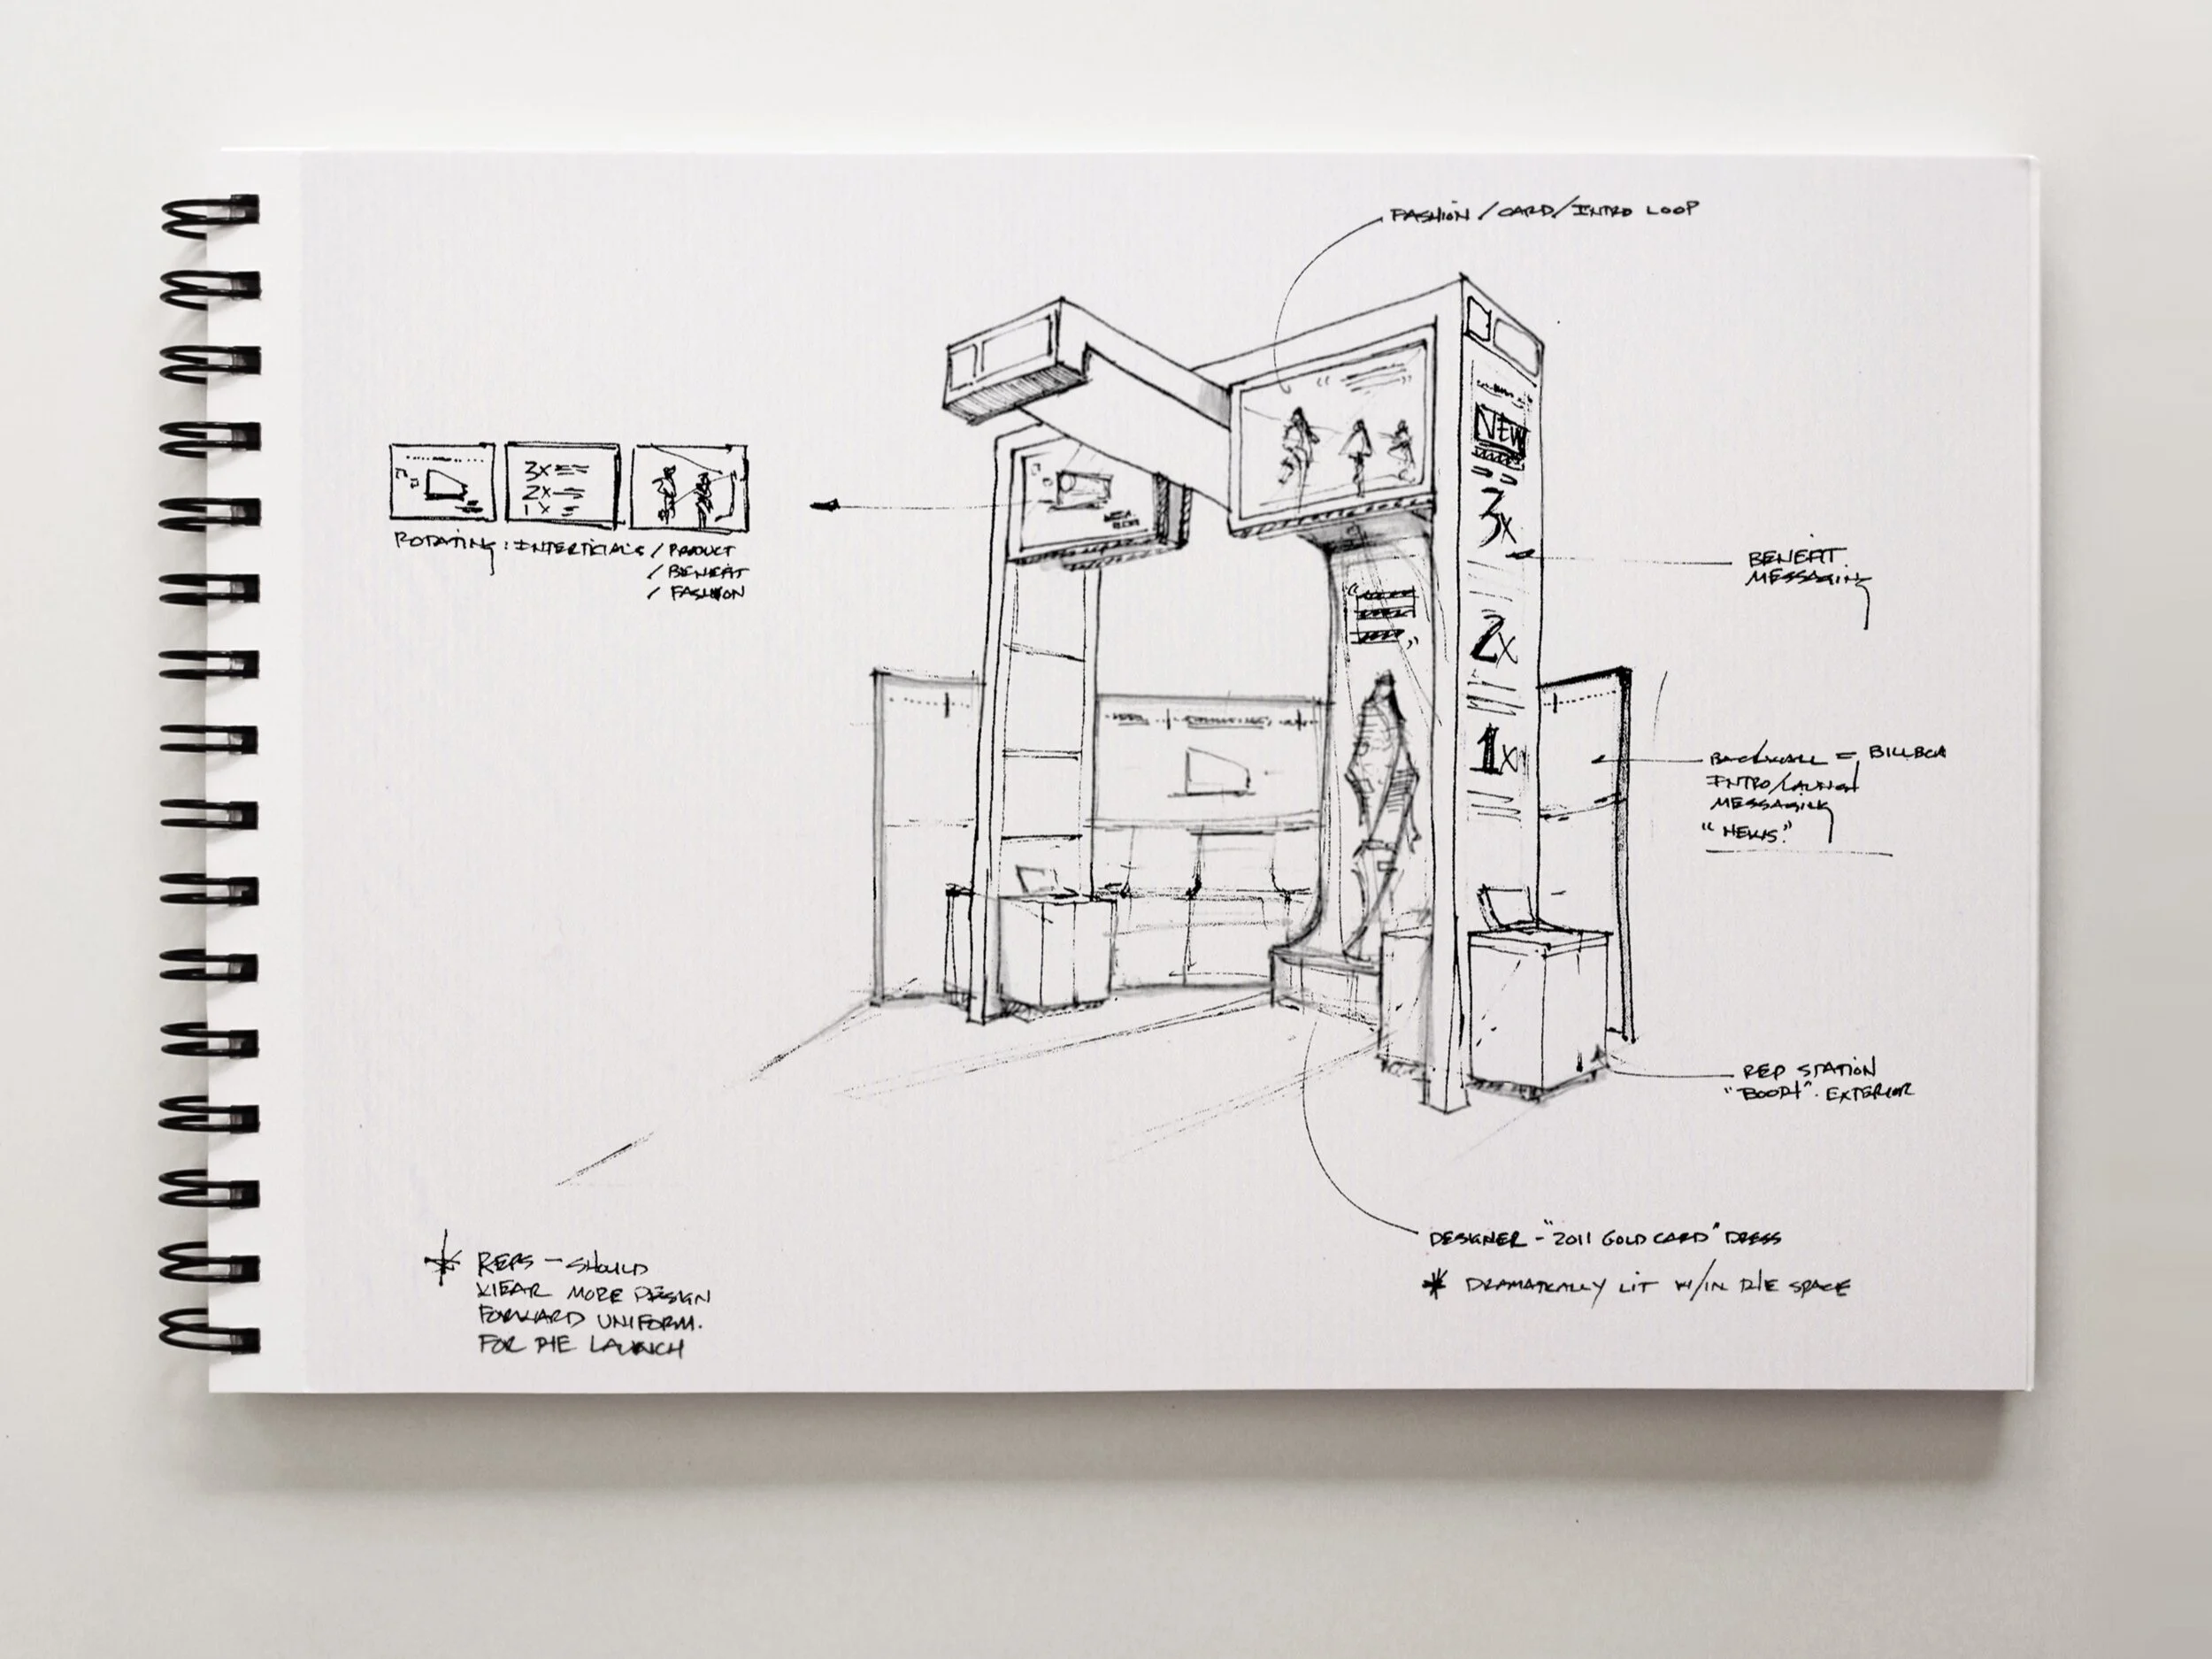 FASHION / CARD / INTRO LOOP
NEW
3X
2X
1X
3X
2X
1X
ROTATING: INTERTICIALS / PRODUCT
/ BENEFIT
/ FASHION
BENEFIT
MESSAGING
BACKWALL = BILLBOA
INTRO/LAUNCH
MESSAGING
"NEWS."
REP STATION
EXTERIOR
DESIGNER - "2011 GOLD CARD" DRESS
* DRAMATICALLY LIT W/IN SPACE
* REPS - SHOULD
WEAR MORE DESIGN
FORWARD UNIFORM.
FOR LAUNCH